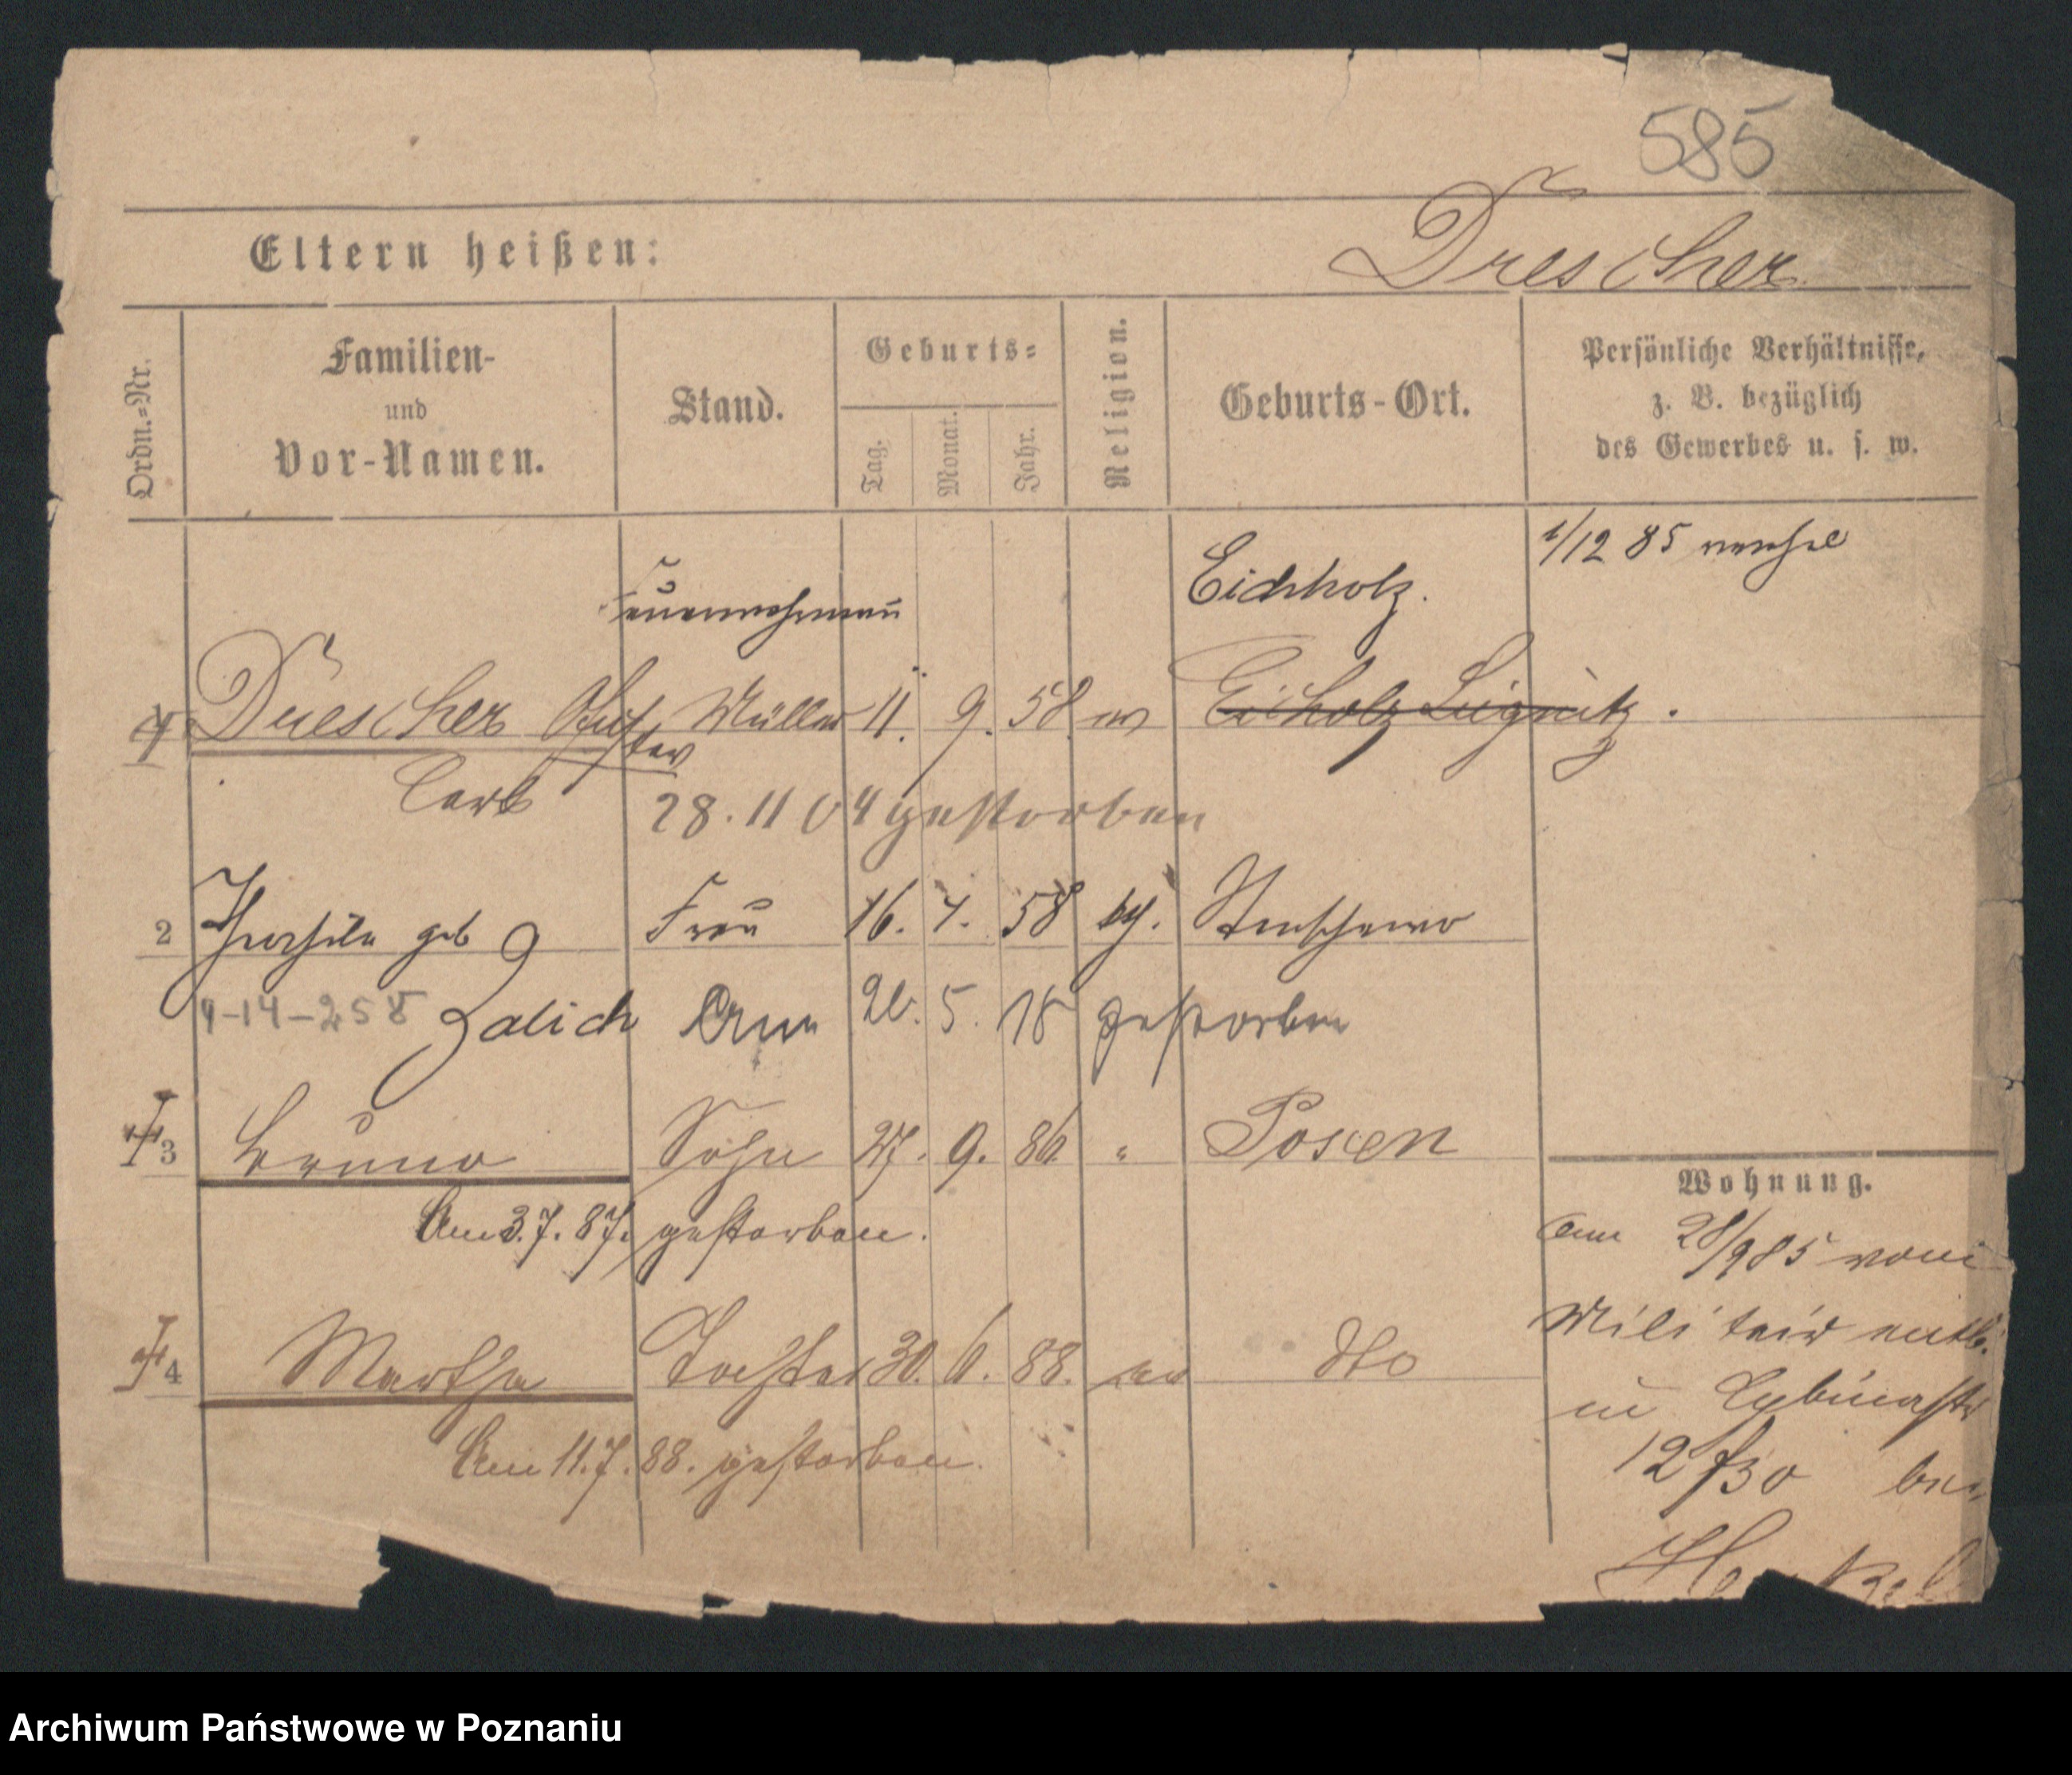 585
Eltern heißen: Drescher
Ordn.=Nr. Familien- und Vor-Namen. Stand. Geburts= Tag. Monat. Jahr. Religion. Geburts-Ort. Persönliche Verhältnisse, z. B. bezüglich des Gewerbes u. s. w.
1/12 85
Feuerwehrmann Eichholz.
Drescher Gustav Müller 11. 9. 58 ev Eichholz Liegnitz.
Carl 28. 11 04 gestorben
2 geb Frau 16. 58
9-14-258 Zalich Am 5. 18 gestorben
3 Bruno Sohn 27. 9. 86 " Posen
Am 3.7.87. gestorben.
Wohnung.
4 Martha Tochter 30. 6. 88. ev dto
Am 11.7.88. gestorben.
Am 28/9 85 vom
Militair entl.
in
12 bei